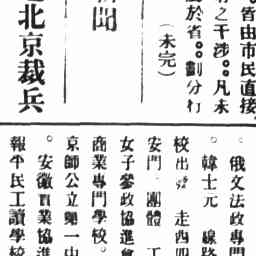 皆由市民直接
之干涉。。凡未
於省。。劃分行
（未完）
新聞
北京裁兵
。俄文法政專門
。韓士元　線路
校出發　走西四
安門。團體　工
女子參政協進會
商業專門學校。
京師公立第一中
。安徽實業協進
報平民工讀學校